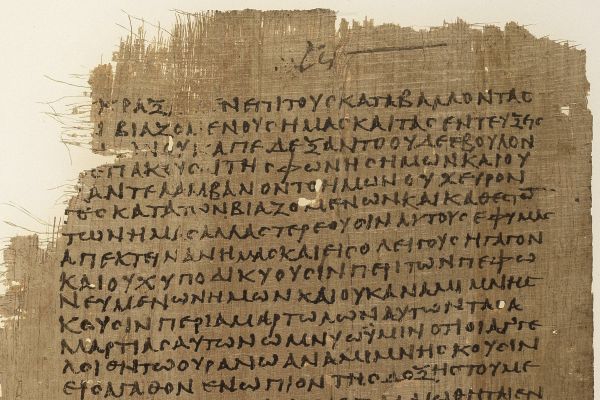 ΚΡΑΞ ΝΕΠΙΤΟΥϹΚΑΤΑΒΑΛΛΟΝΤΑϹ
ΒΙΑΖΟΜΕΝΟΥϹΗΜΑϹΚΑΙΤΑϹΕΝΤΕΥΞΕΙϹ
ΑΠΕΔΕΞΑΝΤΟΟΥΔΕΕΒΟΥΛΟΝ
ΕΠΑΚΟΥϹΑΙΤΗϹΦΩΝΗϹΗΜΩΝΚΑΙΟΥ
ΑΝΤΕΛΑΜΒΑΝΟΝΤΟΗΜΩΝΟΥΧΕΥΡΟΝ
ΚΑΤΑΤΩΝΒΙΑΖΟΜΕΝΩΝΚΑΙΚΑΤΕϹΘ
ΤΩΝΗΜΑϹΑΛΛΑϹΤΕΡΕΟΥϹΙΝΑΥΤΟΥϹΕΦΥΜΑϹ
ΑΠΕΚΤΕΙΝΑΝΗΜΑϹΚΑΙΕΙϹΟΛΕΙΓΟΥϹΗΓΑΓΟΝ
ΚΑΙΟΥΧΥΠΟΔΙΚΥΟΥϹΙΝΠΕΡΙΤΩΝΠΕΦΩ
ΝΕΥΜΕΝΩΝΗΜΩΝΚΑΙΟΥΚΑΝΑΜΙΜΝΗϹ
ΚΟΥϹΙΝΠΕΡΙΑΜΑΡΤΩΛΩΝΑΥΤΩΝΤΑϹΑ
ΜΑΡΤΙΑϹΑΥΤΩΝΟΜΝΥΩΥΜΙΝΟΤΙΟΙΑΓΓΕ
ΛΟΙΕΝΤΩΟΥΡΑΝΩΑΝΑΜΙΜΝΗϹΚΟΥϹΙΝ
ΕΙϹΑΓΑΘΟΝΕΝΩΠΙΟΝΤΗϹΔΟΞΗϹΤΟΥΜΕ